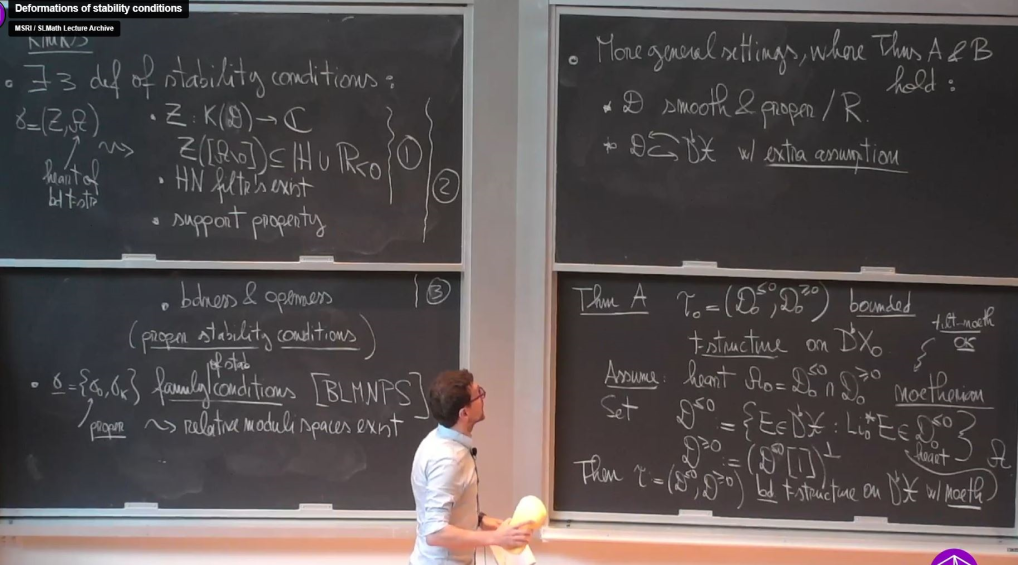 Deformations of stability conditions
MSRI / SLMath Lecture Archive
• ∃ 3 def of stability conditions:
σ=(Z,𝒜) ⇝ • Z : K(D) → ℂ
heart of
bd t-str
Z([𝒜\0]) ⊆ ℍ ∪ ℝ<0 ①
②
• HN filtr's exist
• support property
• bdness & openness ③
(proper stability conditions)
• σ = {σ₀, σ_K} family of stab conditions [BLMNPS]
proper ⇝ relative moduli spaces exist
• More general settings, where Thms A & B
hold:
* D smooth & proper / R.
w/ extra assumption
Thm A τ₀ = (D₀^≤0, D₀^≥0) bounded
t-structure on DᵇX₀
Assume: heart 𝒜₀ = D₀^≤0 ∩ D₀^≥0 noetherian
tilt-noeth
Set D^≤0 = {E ∈ Dᵇ𝒳 : Li₀*E ∈ D₀^≤0}
D^≥0 := (D^≤0[1])^⊥
heart 𝒜
Then τ = (D^≤0, D^≥0) bd t-structure on Dᵇ𝒳 w/ noeth